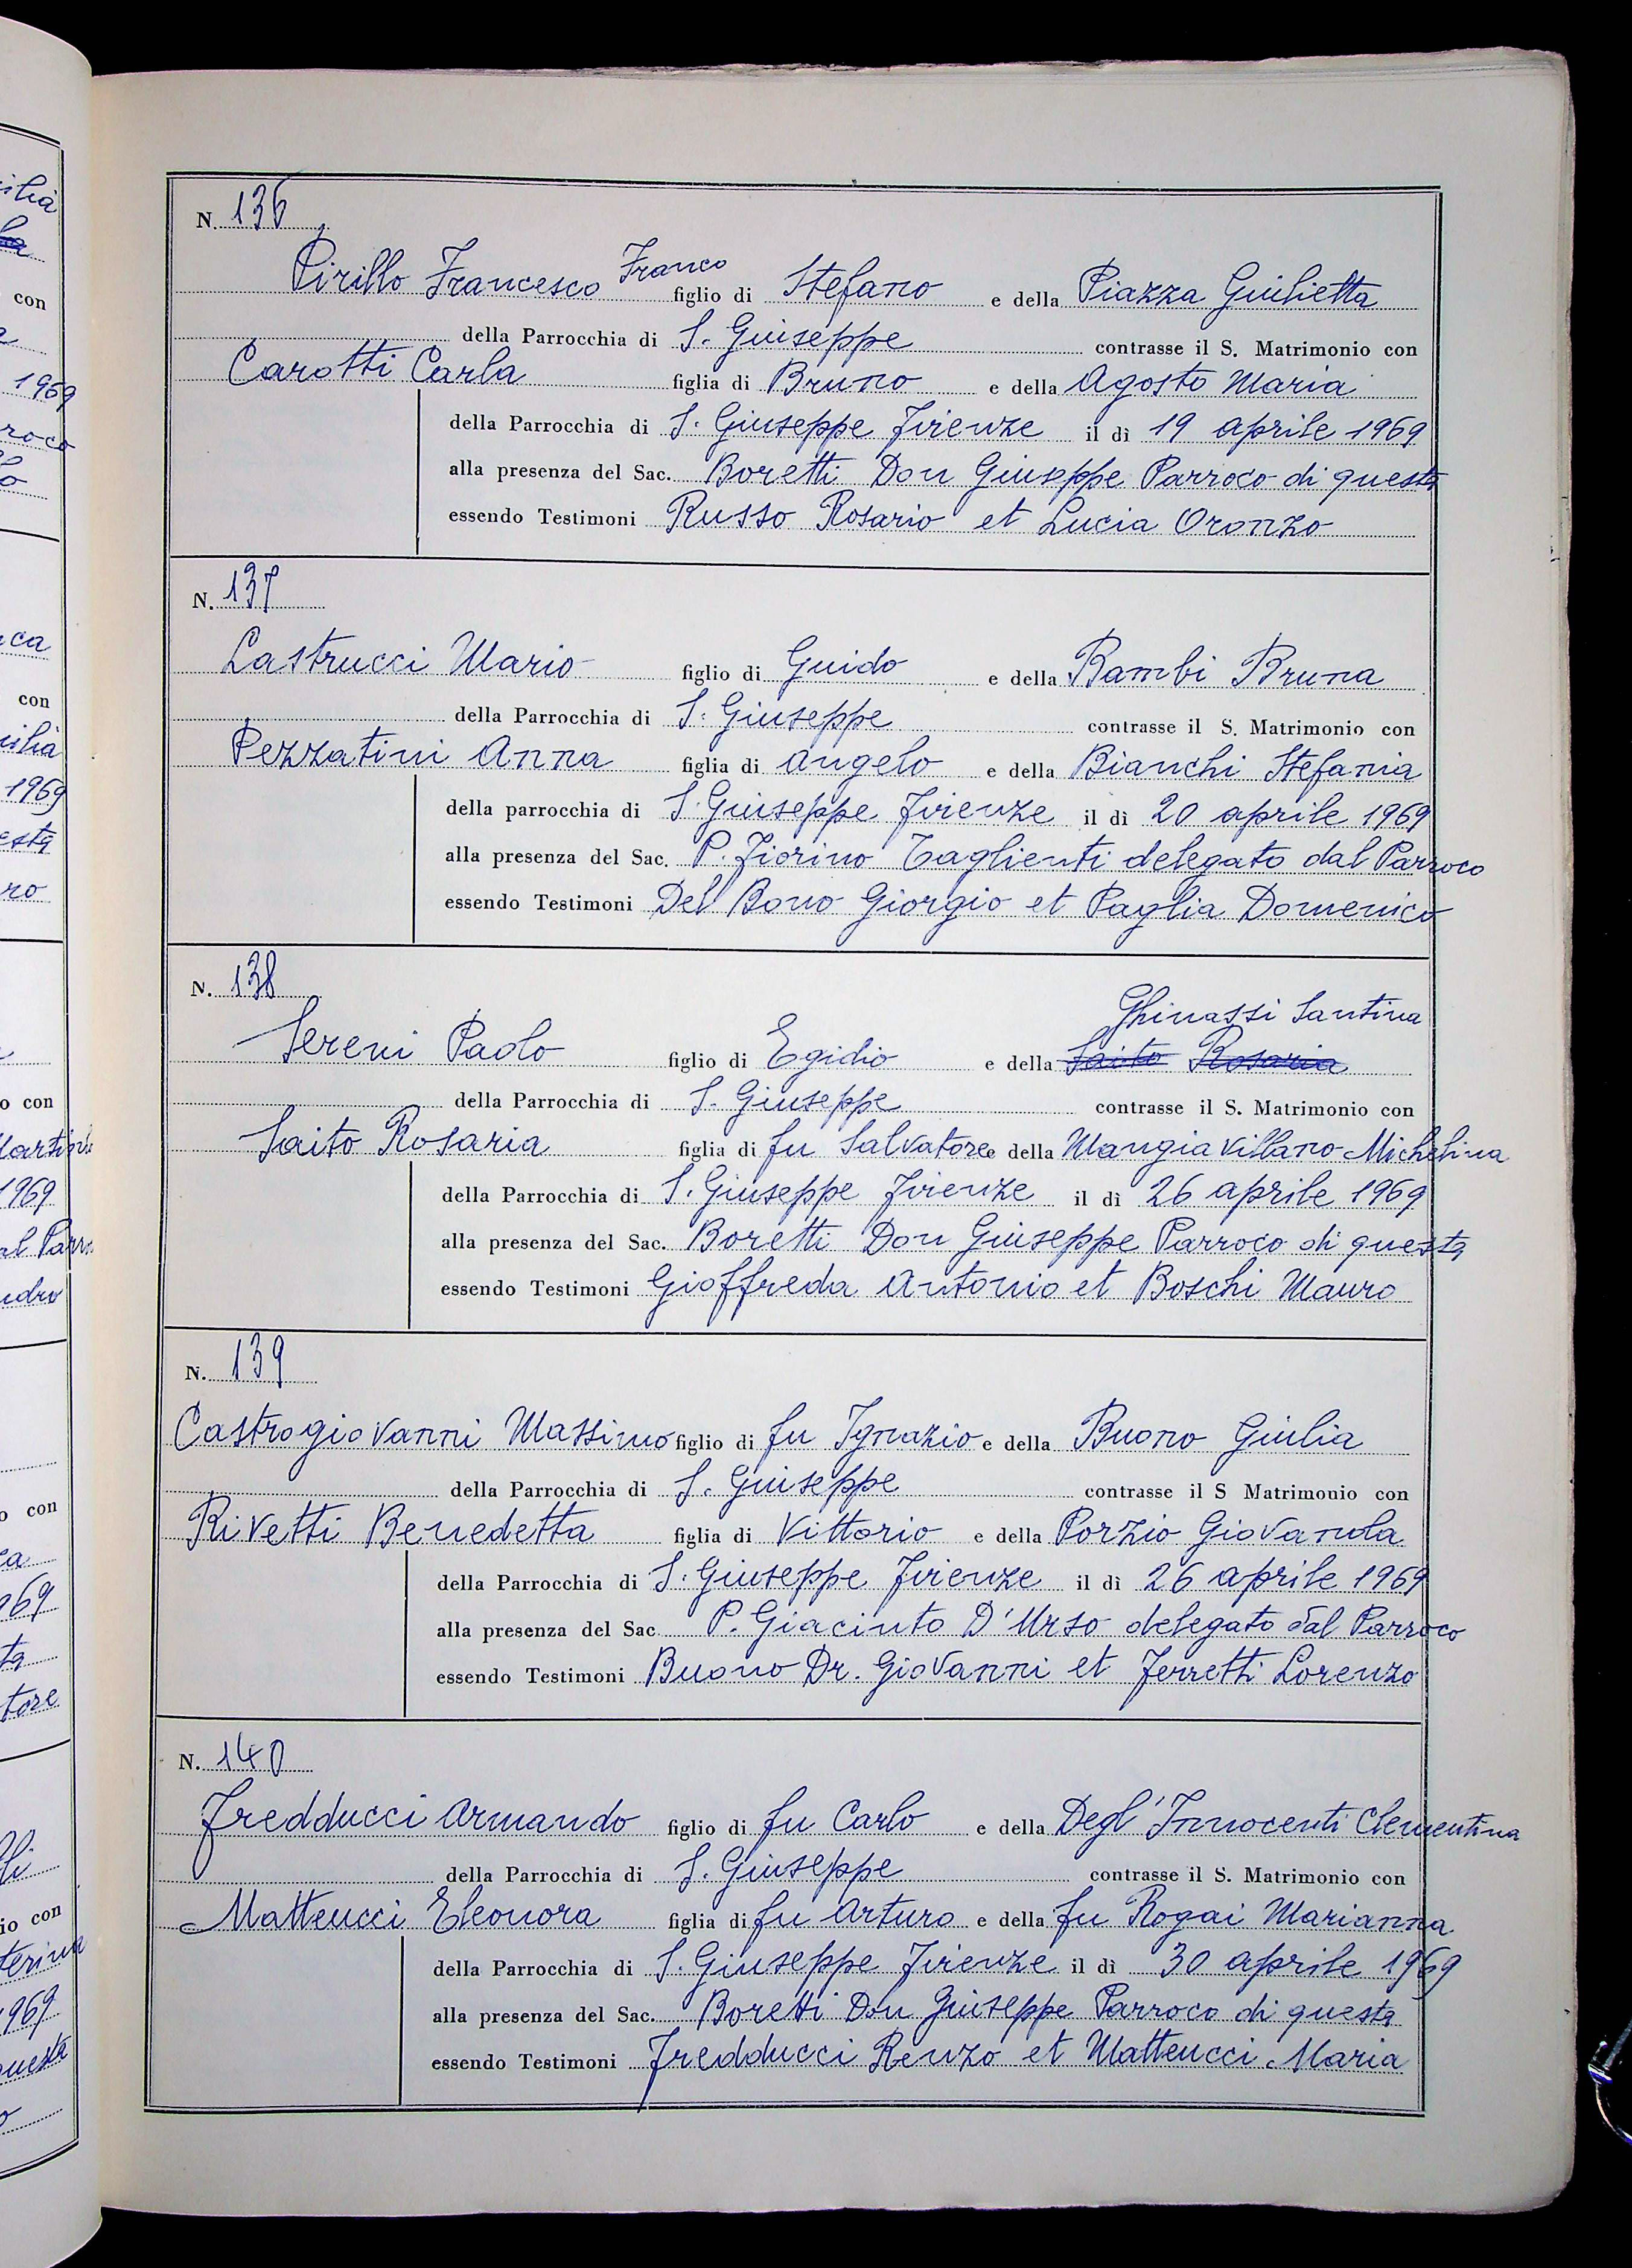 N. 136
Pirillo Francesco Franco figlio di Stefano e della Piazza Giulietta
della Parrocchia di S. Giuseppe contrasse il S. Matrimonio con
Carotti Carla figlia di Bruno e della Agosto Maria
della Parrocchia di S. Giuseppe Firenze il dì 19 aprile 1969
alla presenza del Sac. Boretti Don Giuseppe Parroco di questa
essendo Testimoni Russo Rosario et Lucia Oronzo
N. 137
Lastrucci Mario figlio di Guido e della Bambi Bruna
della Parrocchia di S. Giuseppe contrasse il S. Matrimonio con
Pezzatini Anna figlia di Angelo e della Bianchi Stefania
della parrocchia di S. Giuseppe Firenze il dì 20 aprile 1969
alla presenza del Sac. P. Fiorino Taglienti delegato dal Parroco
essendo Testimoni Del Bono Giorgio et Paglia Domenico
N. 138
Ghinassi Santina
Sereni Paolo figlio di Egidio e della Saito Rosaria
della Parrocchia di S. Giuseppe contrasse il S. Matrimonio con
Saito Rosaria figlia di fu Salvatore e della Mangiavillano Michelina
della Parrocchia di S. Giuseppe Firenze il dì 26 aprile 1969
alla presenza del Sac. Boretti Don Giuseppe Parroco di questa
essendo Testimoni Gioffreda Antonio et Boschi Mauro
N. 139
Castrogiovanni Massimo figlio di fu Ignazio e della Buono Giulia
della Parrocchia di S. Giuseppe contrasse il S Matrimonio con
Rivetti Benedetta figlia di Vittorio e della Porzio Giovanola
della Parrocchia di S. Giuseppe Firenze il dì 26 aprile 1969
alla presenza del Sac. P. Giacinto D'Urso delegato dal Parroco
essendo Testimoni Buono Dr. Giovanni et Ferretti Lorenzo
N. 140
Fredducci Armando figlio di fu Carlo e della Degl'Innocenti Clementina
della Parrocchia di S. Giuseppe contrasse il S. Matrimonio con
Matteucci Eleonora figlia di fu Arturo e della fu Rogai Marianna
della Parrocchia di S. Giuseppe Firenze il dì 30 aprile 1969
alla presenza del Sac. Boretti Don Giuseppe Parroco di questa
essendo Testimoni Fredducci Renzo et Matteucci Maria